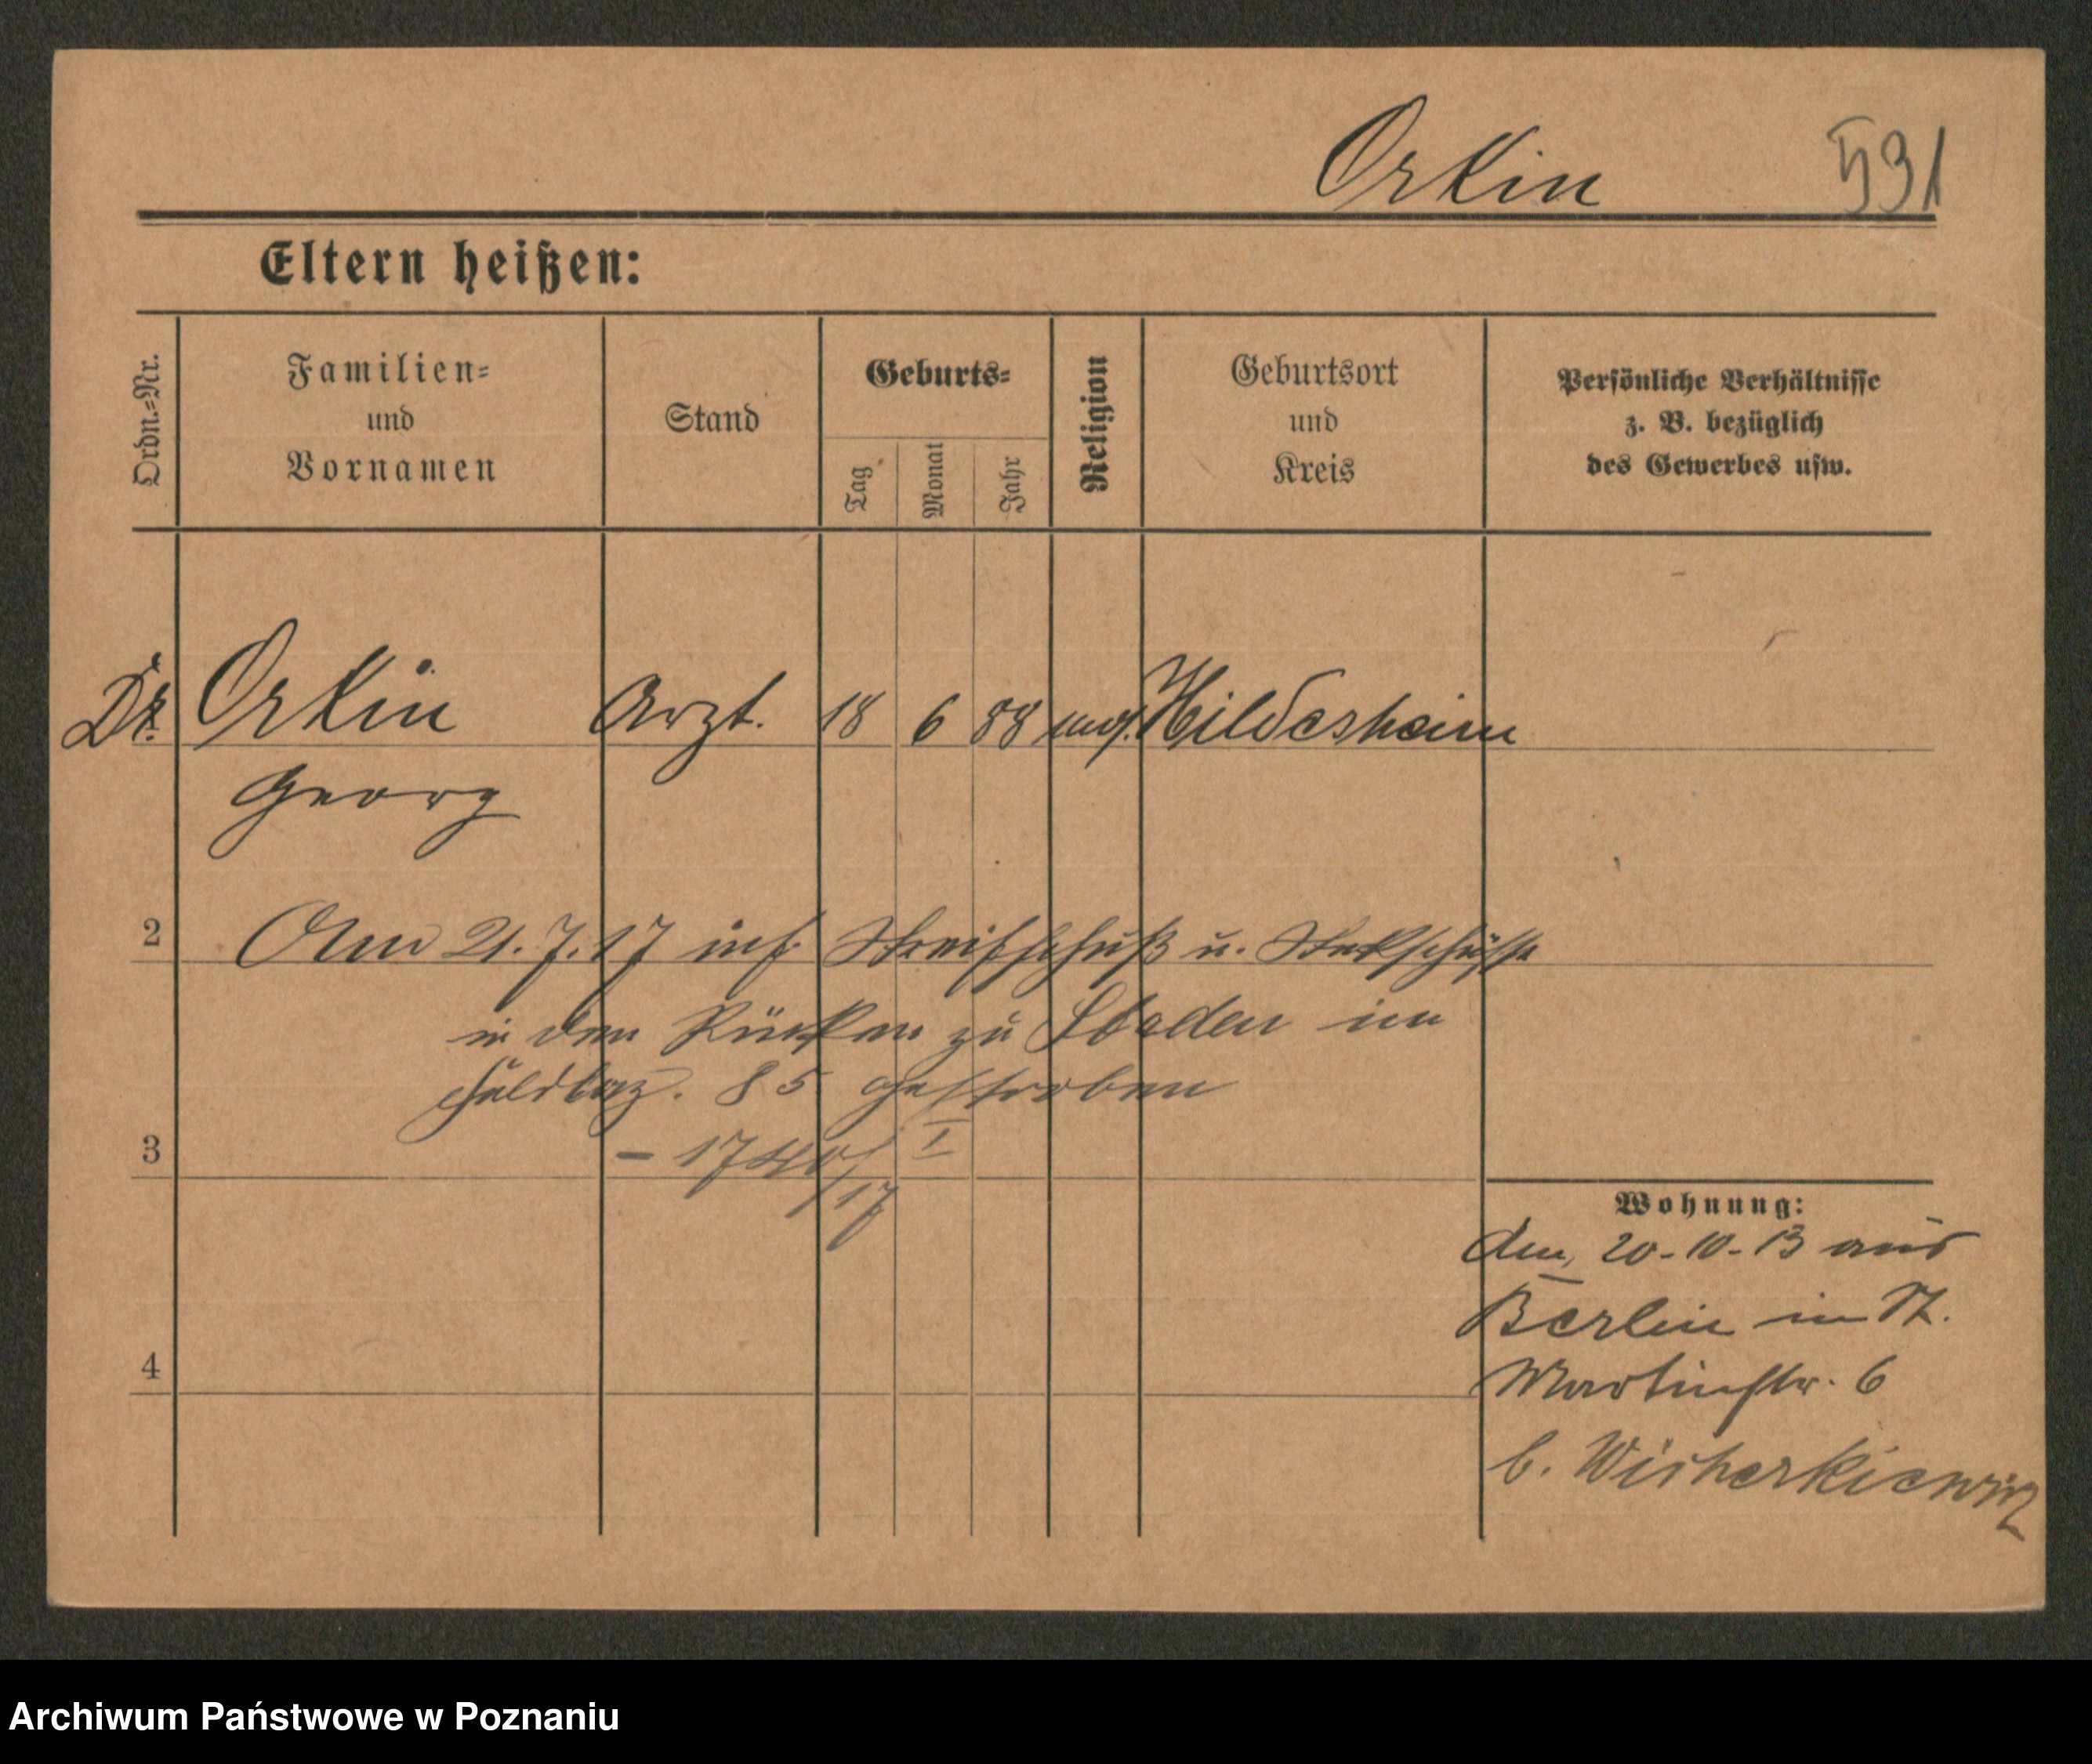 Orkin 531
Eltern heißen:
Ordn.-Nr.
Familien-
und
Vornamen
Stand
Geburts-
Tag
Monat
Jahr
Religion
Geburtsort
und
Kreis
Persönliche Verhältnisse
z. B. bezüglich
des Gewerbes usw.
Dr. Orkin Arzt. 18 6 88 mos. Hildesheim
Georg
2 Am 21.7.17 inf. Streifschuß u. Steckschüsse
in den Rücken zu Staden im
Feldlaz. 85 gestorben
3
I
17
Wohnung:
den 20-10-13 aus
Berlin in St.
Martinstr. 6
4
b.
Archiwum Państwowe w Poznaniu